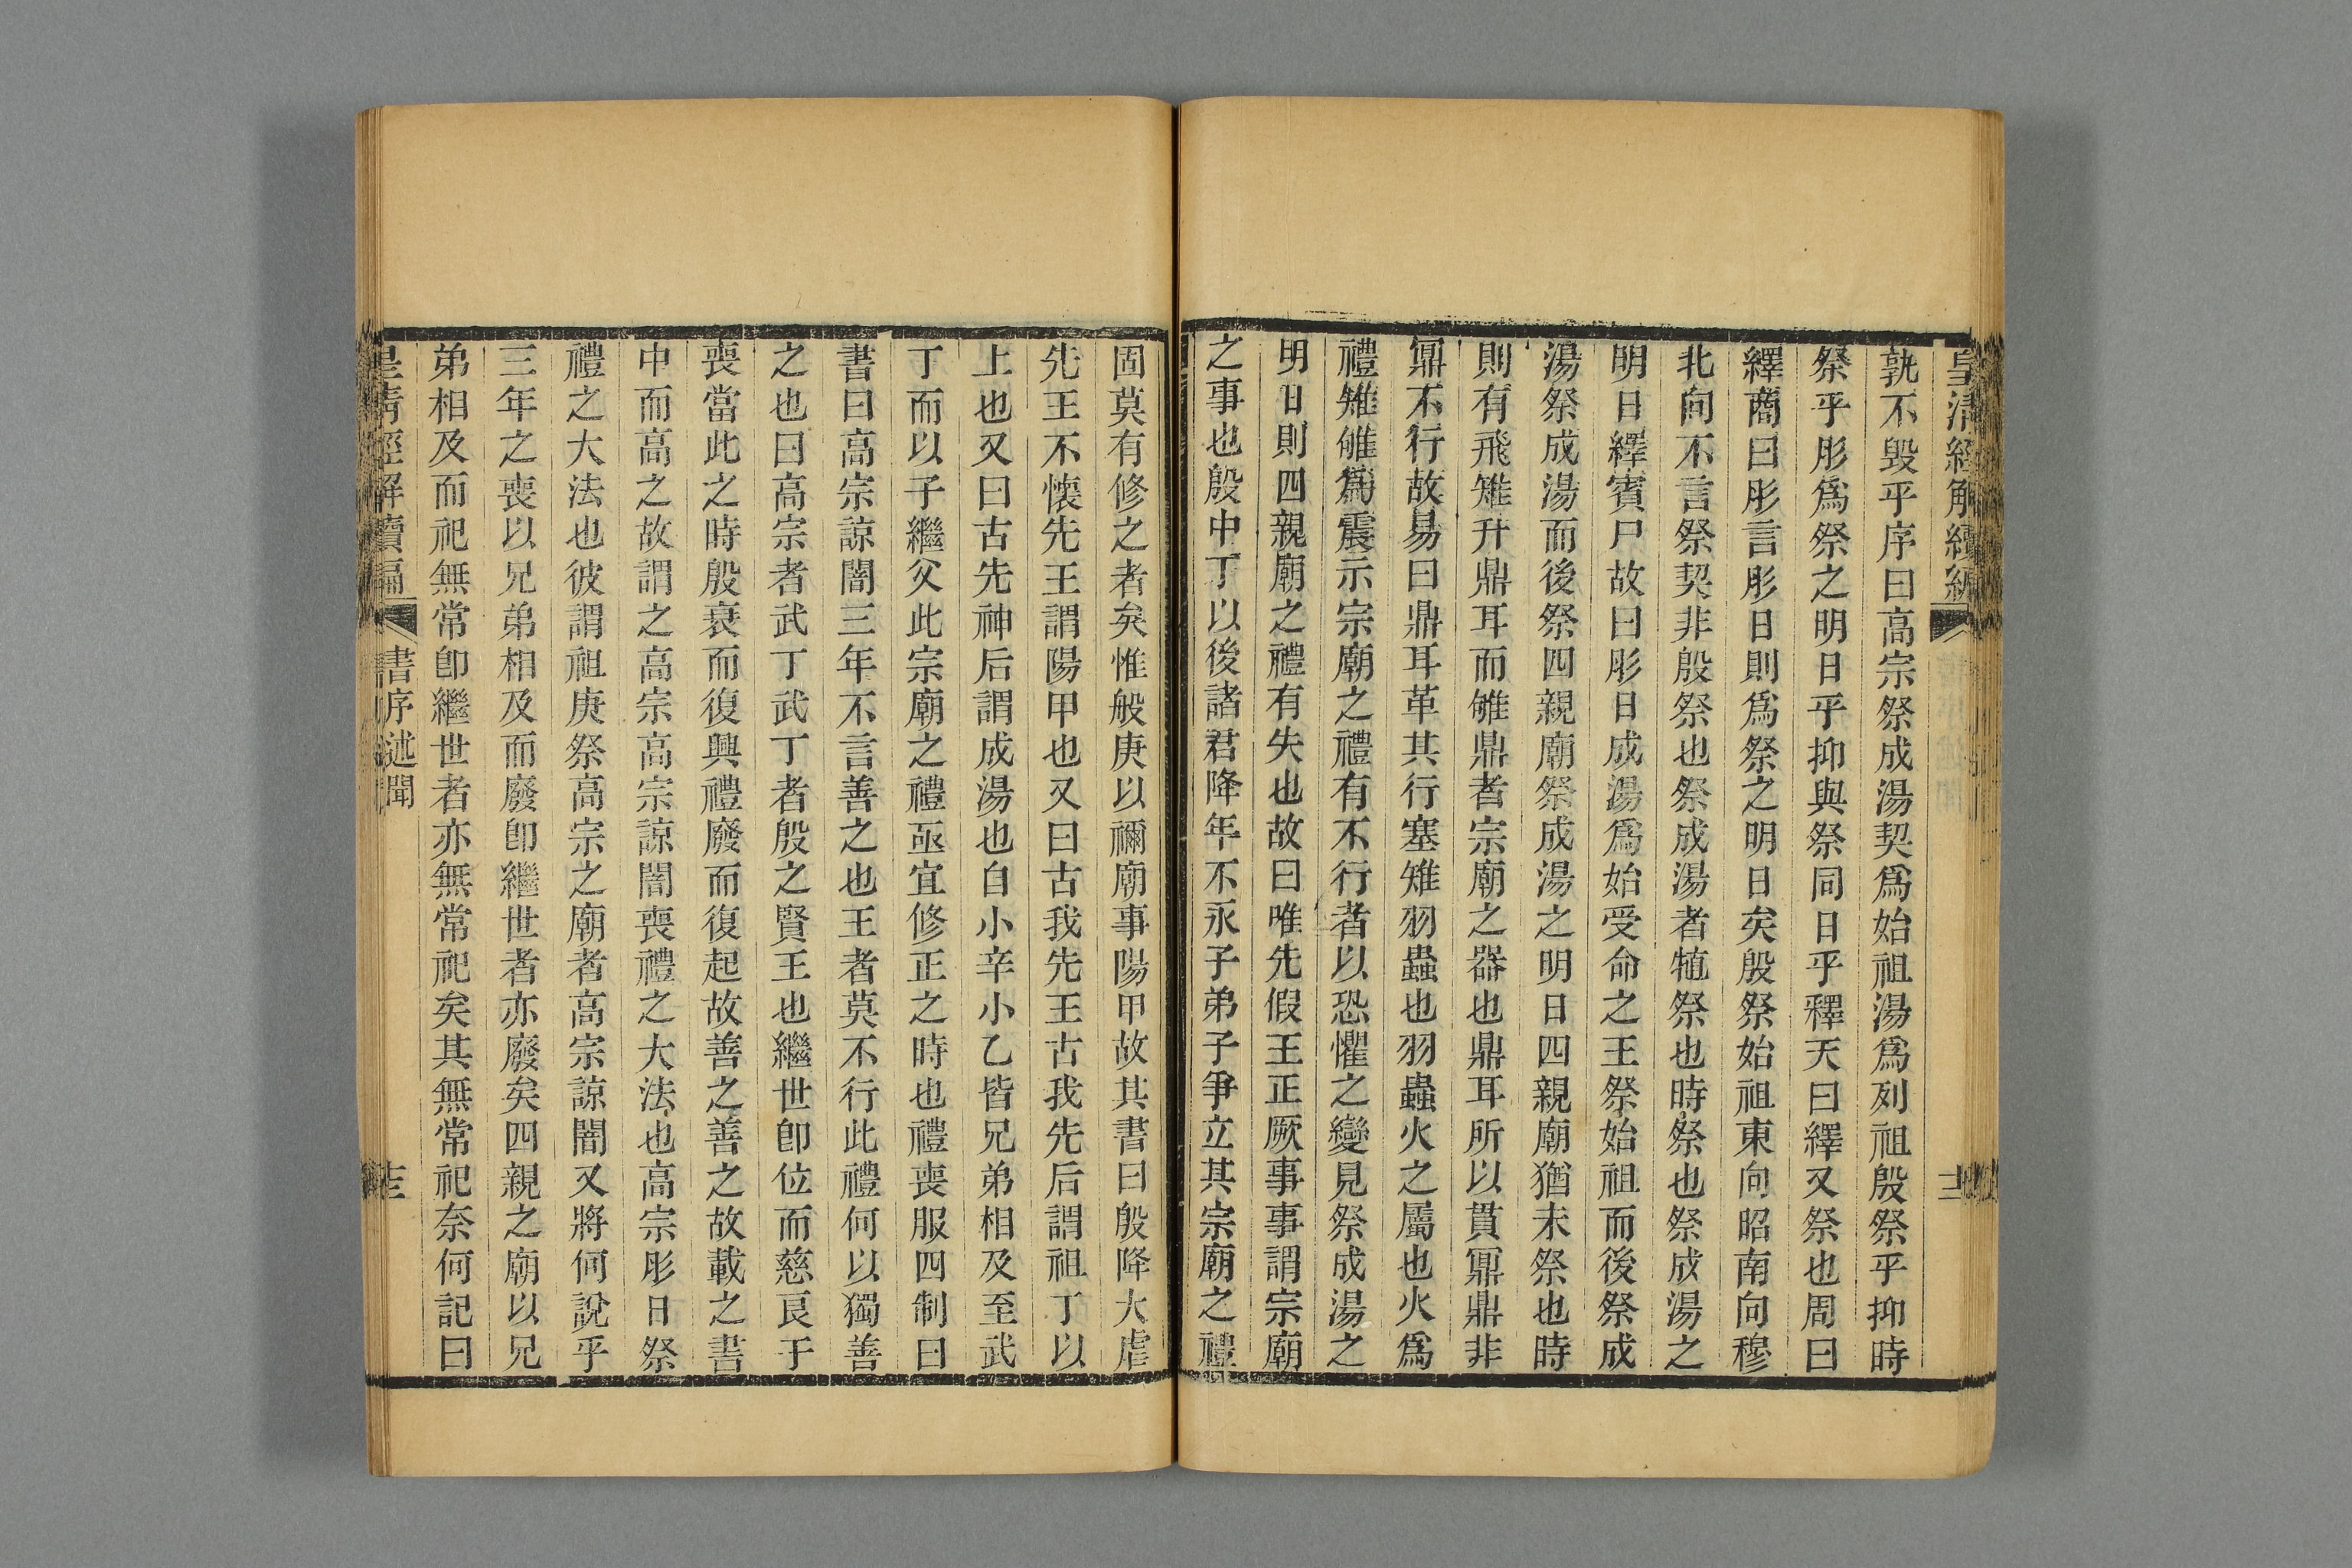 皇清經解續編
十二
孰不毀乎序曰高宗祭成湯契爲始祖湯爲列祖殷祭乎抑時
祭乎肜爲祭之明日乎抑與祭同日乎釋天曰繹又祭也周曰
繹商曰肜言肜日則爲祭之明日矣殷祭始祖東向昭南向穆
北向不言祭契非殷祭也祭成湯者犆祭也時祭也祭成湯之
明日繹賓尸故曰肜日成湯爲始受命之王祭始祖而後祭成
湯祭成湯而後祭四親廟祭成湯之明日四親廟猶未祭也時
則有飛雉升鼎耳而雊鼎者宗廟之器也鼎耳所以貫鼏鼎非
鼏不行故易曰鼎耳革其行塞雉羽蟲也羽蟲火之屬也火爲
禮雉雊爲震示宗廟之禮有不行者以恐懼之變見祭成湯之
明日則四親廟之禮有失也故曰唯先假王正厥事事謂宗廟
之事也殷中丁以後諸君降年不永子弟子爭立其宗廟之禮
固莫有修之者矣惟般庚以禰廟事陽甲故其書曰殷降大虐
先王不懷先王謂陽甲也又曰古我先王古我先后謂祖丁以
上也又曰古先神后謂成湯也自小辛小乙皆兄弟相及至武
丁而以子繼父此宗廟之禮亟宜修正之時也禮喪服四制曰
書曰高宗諒闇三年不言善之也王者莫不行此禮何以獨善
之也曰高宗者武丁武丁者殷之賢王也繼世卽位而慈良于
喪當此之時殷衰而復興禮廢而復起故善之善之故載之書
中而高之故謂之高宗高宗諒闇喪禮之大法也高宗肜日祭
禮之大法也彼謂祖庚祭高宗之廟者高宗諒闇又將何說乎
三年之喪以兄弟相及而廢卽繼世者亦廢矣四親之廟以兄
弟相及而祀無常卽繼世者亦無常祀矣其無常祀奈何記曰
皇淸經解續編
書序述聞
十三